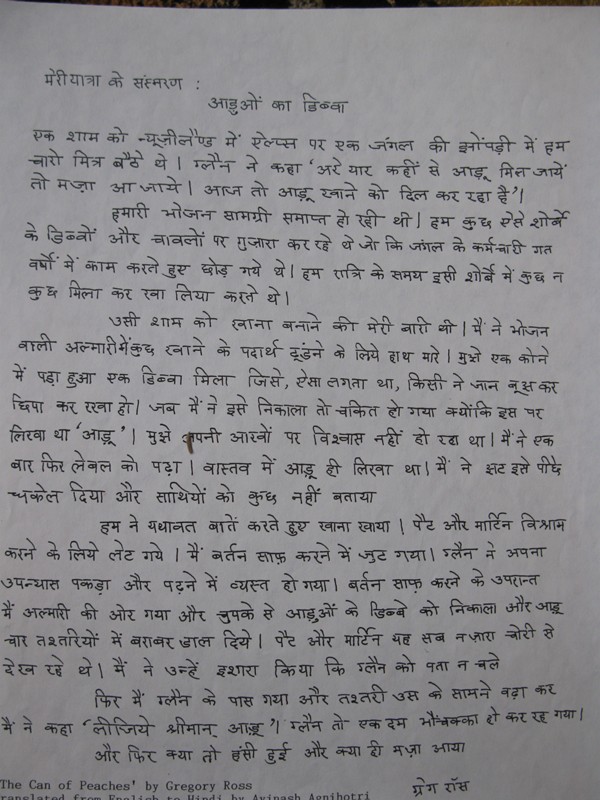 मेरी यात्रा के संस्मरण :
आड़ुओं का डिब्बा
एक शाम को न्यूज़ीलैण्ड में ऐल्प्स पर एक जंगल की झोंपड़ी में हम
चारो मित्र बैठे थे । ग्लैन ने कहा ‘अरे यार कहीं से आड़ू मिल जायें
तो मज़ा आ जाये । आज तो आड़ू खाने को दिल कर रहा है’।
हमारी भोजन सामग्री समाप्त हो रही थी । हम कुछ ऐसे शोर्बे
के डिब्बों और चावलों पर गुज़ारा कर रहे थे जो कि जंगल के कर्मचारी गत
वर्षों में काम करते हुए छोड़ गये थे । हम रात्रि के समय इसी शोर्बे में कुछ न
कुछ मिला कर खा लिया करते थे ।
उसी शाम को खाना बनाने की मेरी बारी थी । मैं ने भोजन
वाली अल्मारी में कुछ खाने के पदार्थ ढूंडने के लिये हाथ मारे । मुझे एक कोने
में पड़ा हुआ एक डिब्बा मिला जिसे, ऐसा लगता था, किसी ने जान बूझ कर
छिपा कर रखा हो । जब मैं ने इसे निकाला तो चकित हो गया क्योंकि इस पर
लिखा था ‘आड़ू’ । मुझे अपनी आखों पर विश्वास नहीं हो रहा था । मैं ने एक
बार फिर लेबल को पढ़ा । वास्तव में आड़ू ही लिखा था । मैं ने झट इसे पीछे
धकेल दिया और साथियों को कुछ नहीं बताया
हम ने यथावत बातें करते हुए खाना खाया । पैट और मार्टिन विश्राम
करने के लिये लेट गये । मैं बर्तन साफ़ करने में जुट गया । ग्लैन ने अपना
उपन्यास पकड़ा और पढ़ने में व्यस्त हो गया । बर्तन साफ़ करने के उपरान्त
मैं अल्मारी की ओर गया और चुपके से आड़ुओं के डिब्बे को निकाला और आड़ू
चार तश्तरियों में बराबर डाल दिये । पैट और मार्टिन यह सब नज़ारा चोरी से
देख रहे थे । मैं ने उन्हें इशारा किया कि ग्लैन को पता न चले
फिर मैं ग्लैन के पास गया और तश्तरी उस के सामने बढ़ा कर
मैं ने कहा ‘लीजिये श्रीमान् आड़ू’। ग्लैन तो एक दम भौचक्का हो कर रह गया ।
और फिर क्या तो हंसी हुई और क्या ही मज़ा आया
ग्रेग रॉस
The Can of Peaches' by Gregory Ross
ranslated from English to Hindi by Avinash Agnihotri